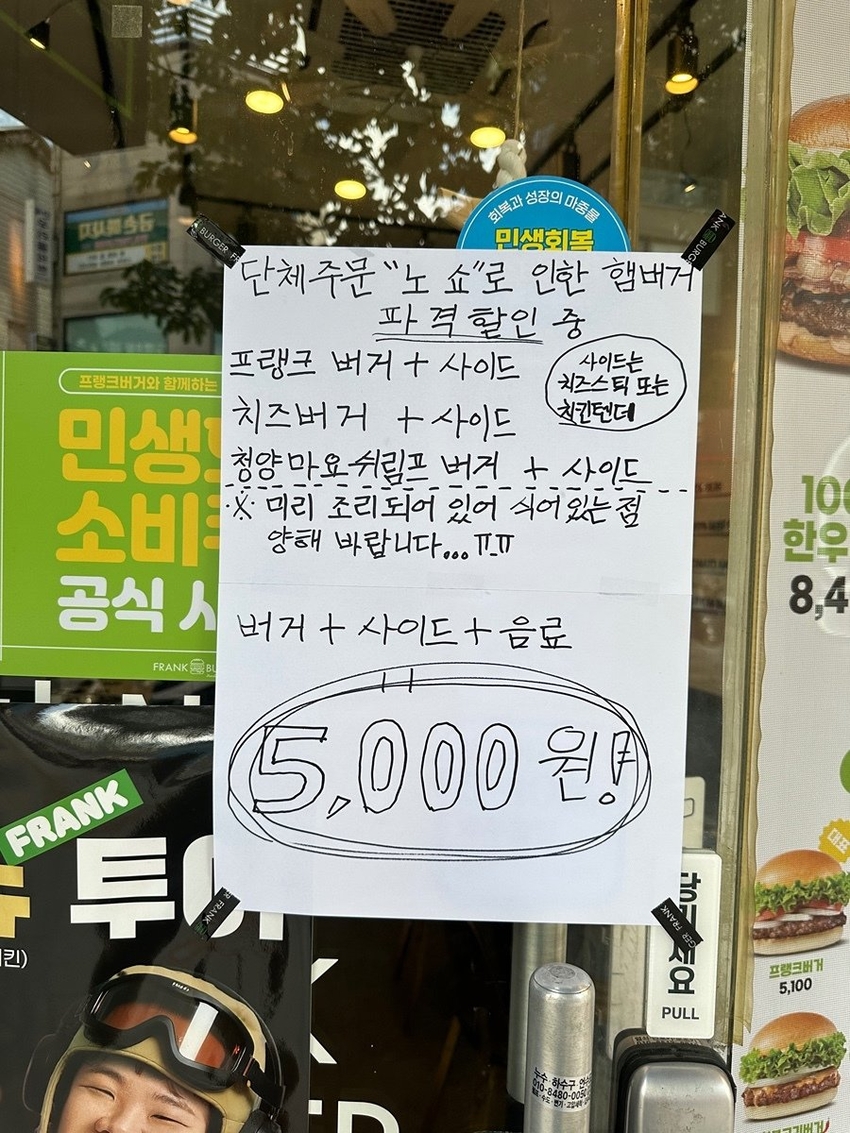 회복과 성장의 마중물
민생회복
BURGER FR
ANK BURG
단체주문 "노 쇼"로 인한 햄버거
파격할인 중
프랭크 버거 + 사이드
사이드는
치즈스틱 또는
치킨텐더
치즈버거 + 사이드
청양마요쉬림프 버거 + 사이드
※ 미리 조리되어 있어 식어있는점
양해 바랍니다...ㅠㅠ
버거 + 사이드 + 음료
5,000원!
프랭크버거와 함께하는
민생
소비
공식
FRANK BU
FRANK
투
킨)
100
한우
8,4
대표
프랭크버거
5,100
GER FRANK
당기세요
PULL
누수·하수구
010-8480-005